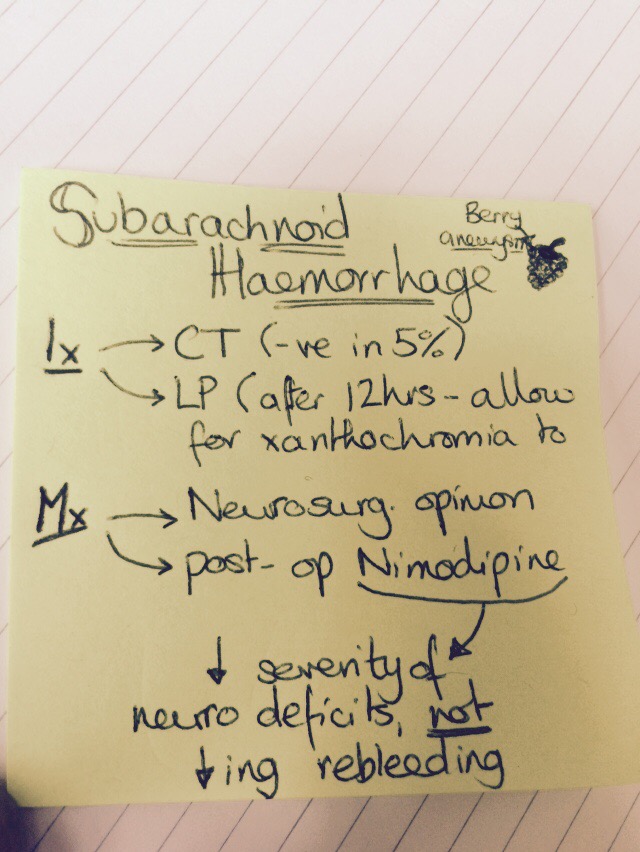 Subarachnoid
Haemorrhage
Berry
aneurysm
Ix → CT (-ve in 5%)
→ LP (after 12hrs - allow
for xanthochromia to
Mx → Neurosurg. opinion
→ post-op Nimodipine
↓ severity of
neuro deficits, not
↓ing rebleeding